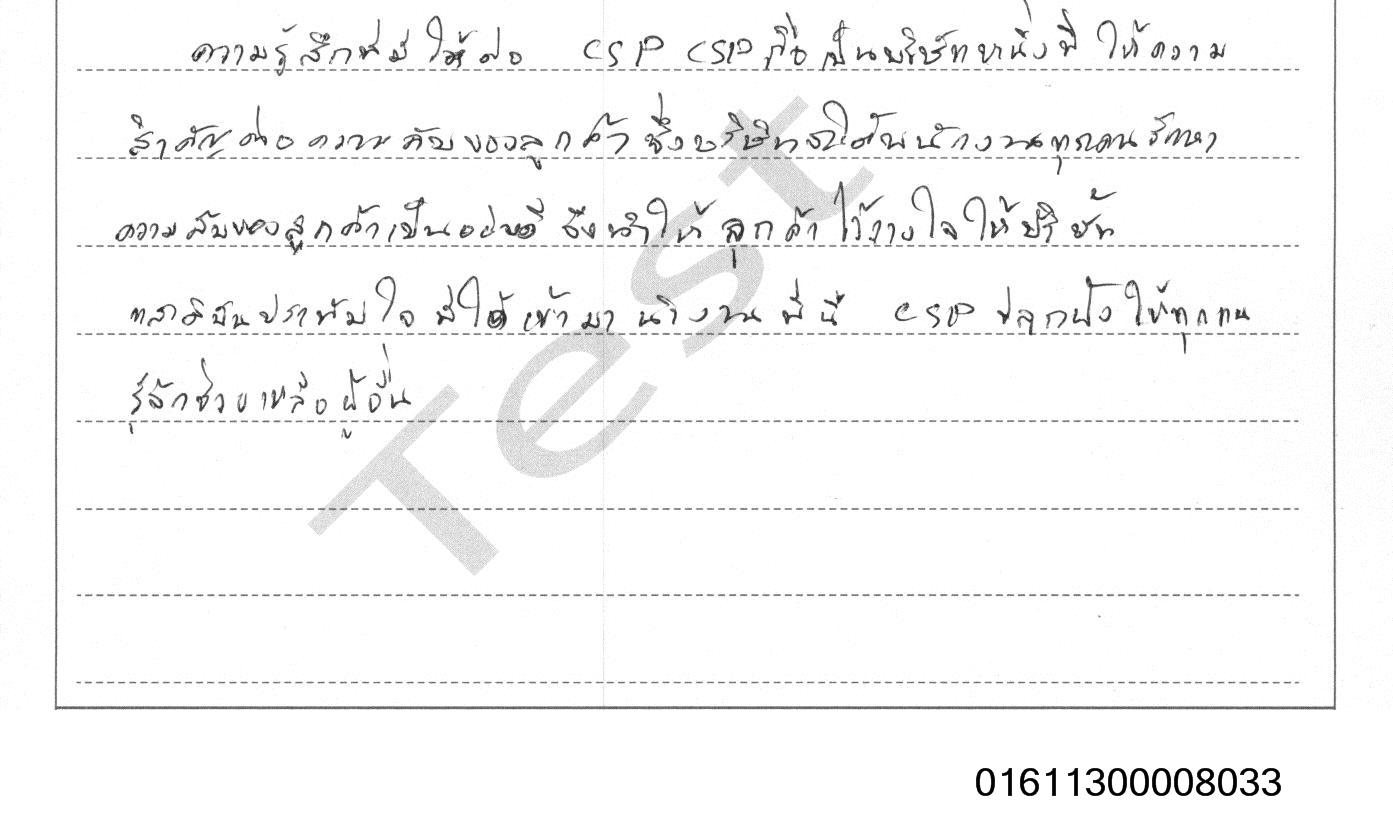 ความรู้สึกที่มีให้ต่อ CSP CSP ถือเป็นบริษัทหนึ่งที่ให้ความ
สำคัญต่อความลับของลูกค้า ซึ่งบริษัท พนักงานทุกคนรักษา
ความลับของลูกค้าเป็นอย่างดี จึงทำให้ลูกค้าไว้วางใจให้บริษัท
ประทับใจ ที่ได้เข้ามาทำงานที่นี่ CSP ปลูกฝังให้ทุกคน
รู้จักช่วยเหลือผู้อื่น
Test
01611300008033